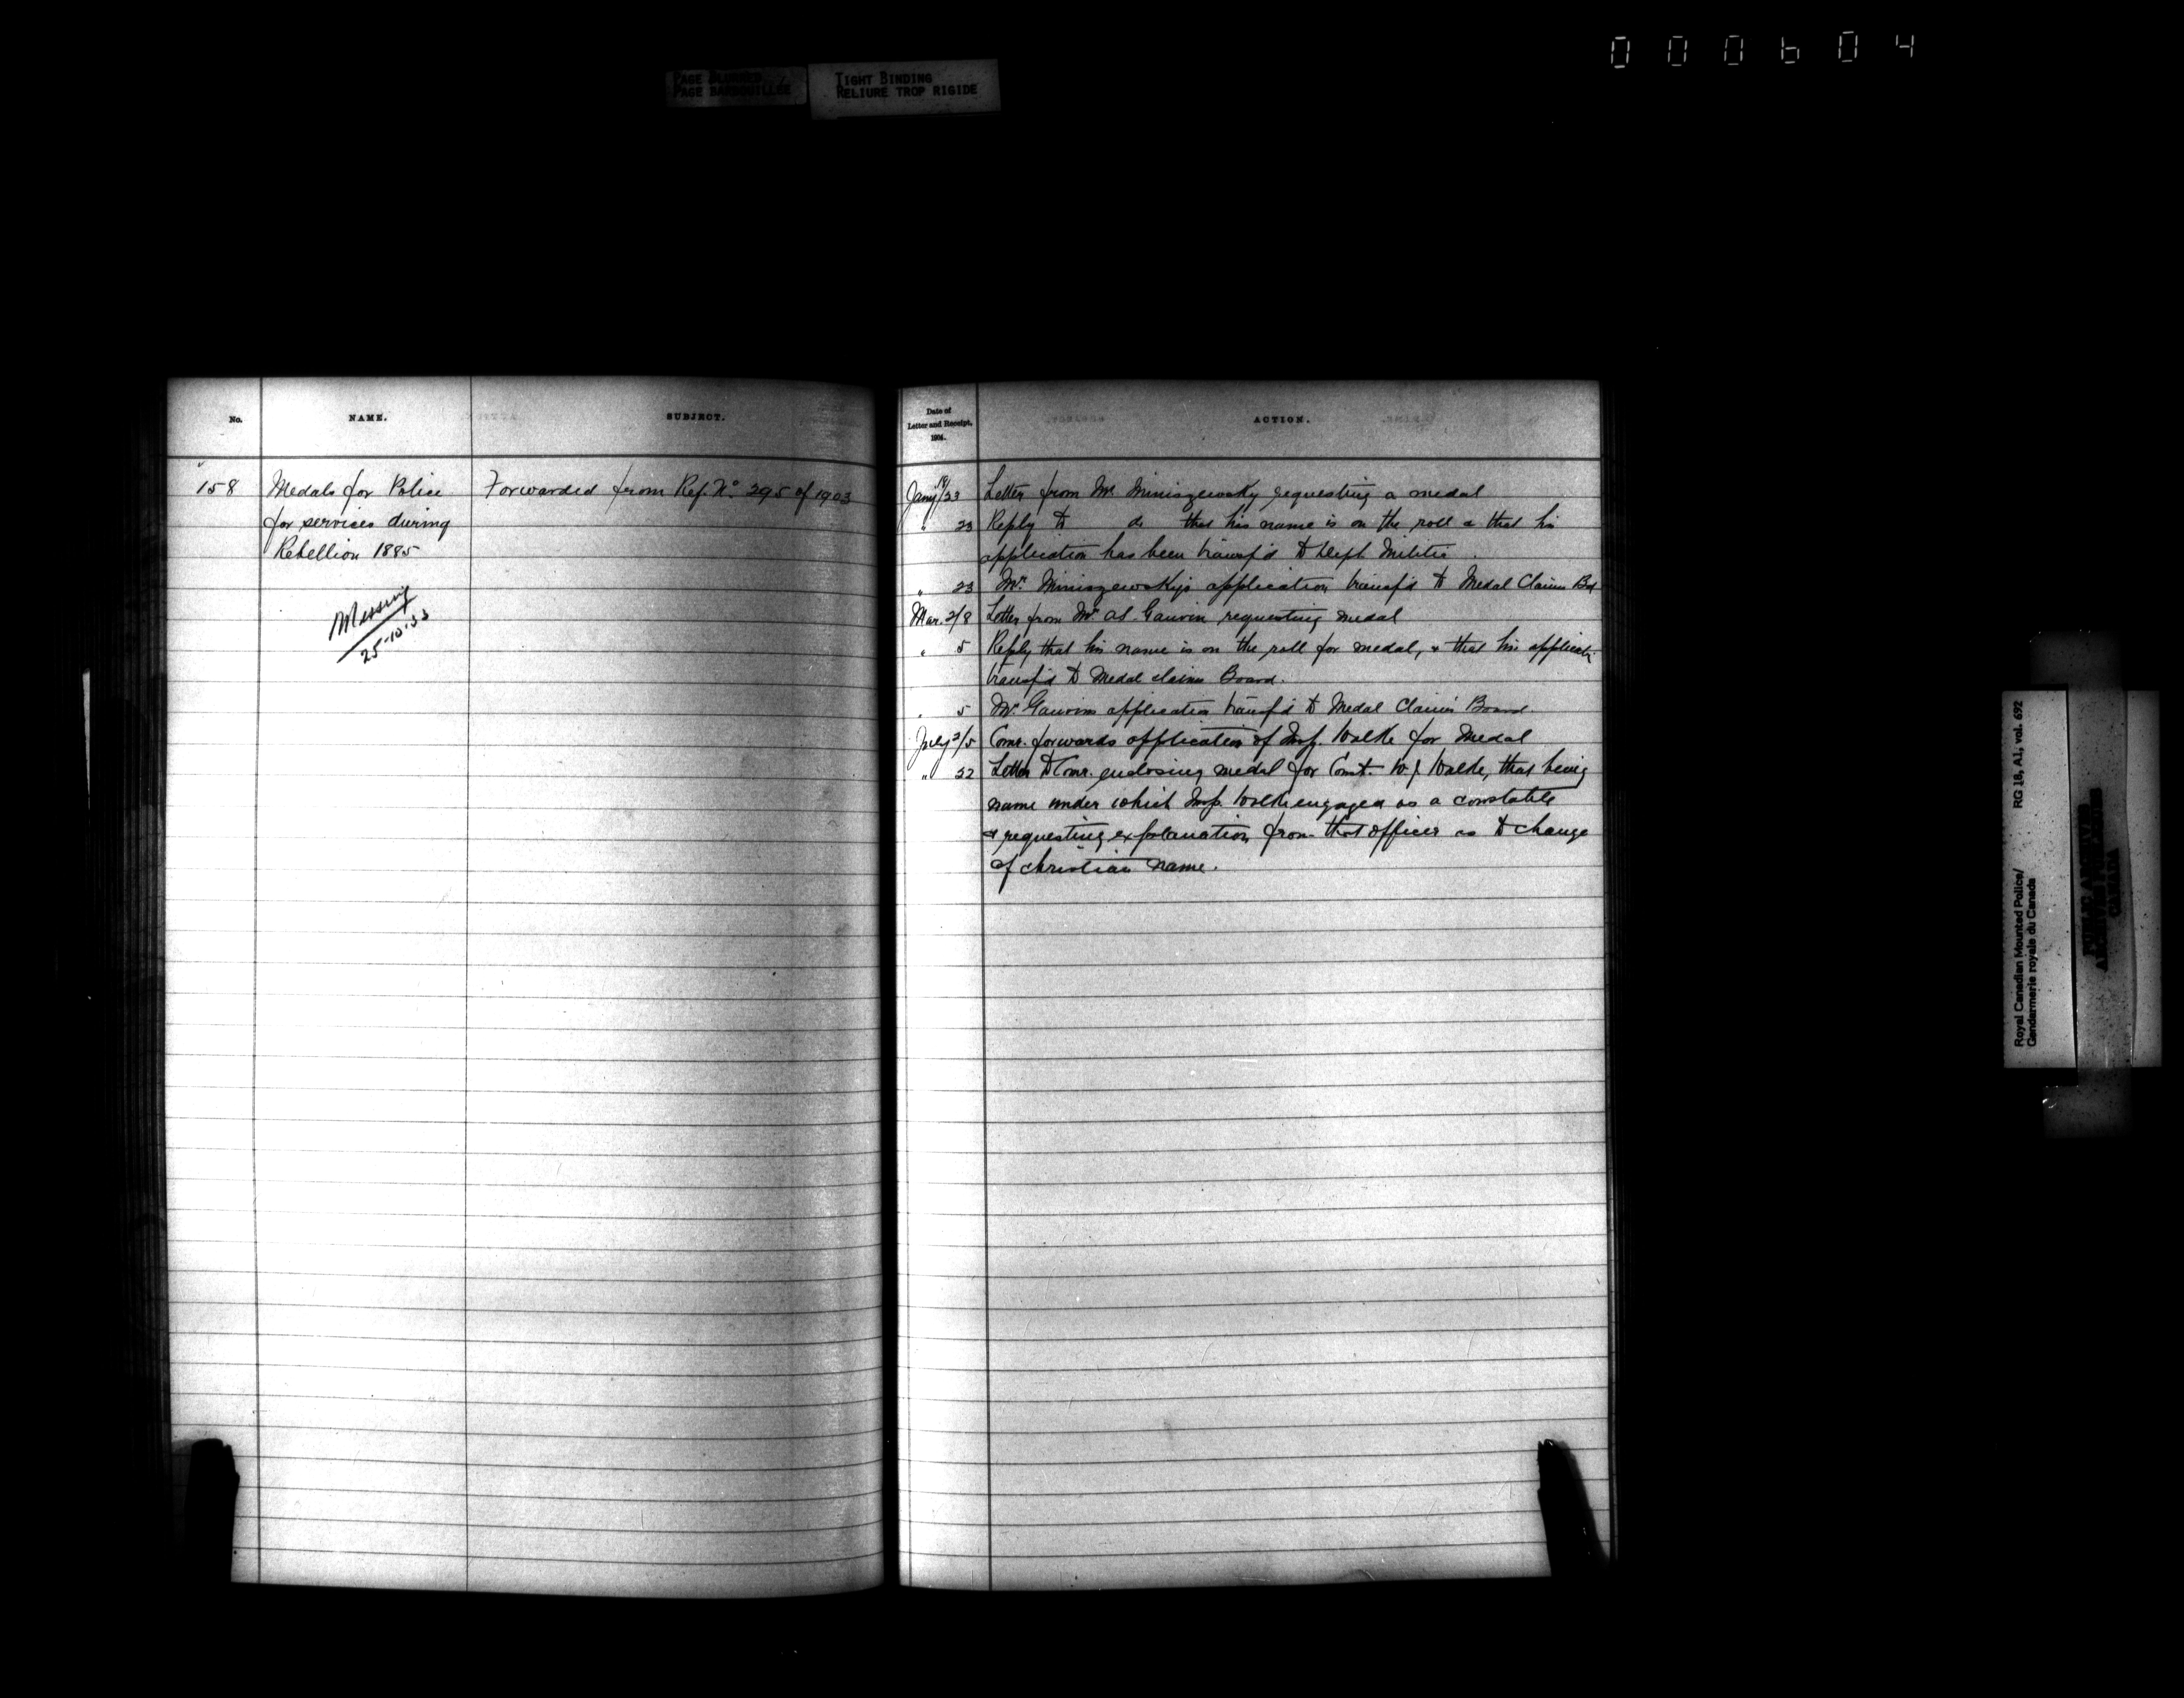 000604
PAGE BLURRED
PAGE BARBOUILLÉE
TIGHT BINDING
RELIURE TROP RIGIDE
No.
NAME.
SUBJECT.
158
Medals for Police
for services during
Rebellion 1885
Missing
25-10-33
Forwarded from Ref. No. 295 of 1903
Date of
Letter and Receipt,
1904.
ACTION.
Jany 19/23 Letter from Mr. Miniszewsky requesting a medal
" 23 Reply to do that his name is on the roll & that his
application has been transf'd to Dept Militia.
" 23 Mr. Miniszewsky's application transf'd to Medal Claims Bd
Mar. 2/8 Letter from Mr. Gauvin requesting medal
" 5 Reply that his name is on the roll for medal, & that his applicati
transf'd to Medal claims Board.
" 5 Mr. Gauvins application transf'd to Medal Claims Board
July 2/5 Comr. forwards application of Insp. Walke for Medal
" 22 Letter to Comr. enclosing medal for Const. W. J. Walke, that being
name under which Insp. Walke engaged as a constable
& requesting explanation from that officer as to change
of christian name.
Royal Canadian Mounted Police/ RG 18, A1, vol. 692
Gendarmerie royale du Canada
PUBLIC ARCHIVES
ARCHIVES PUBLIQUES
CANADA